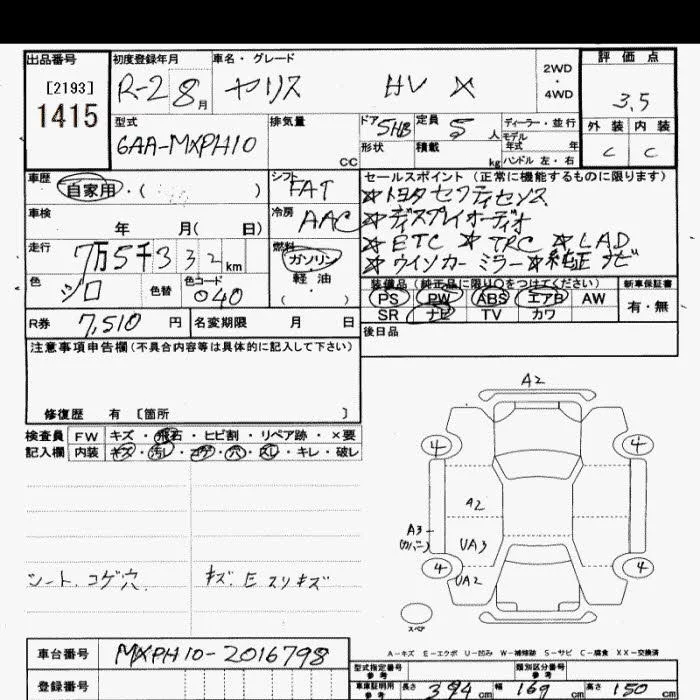 出品番号
[2193]
1415
初度登録年月
R-2 8月
車名・グレード
ヤリス HV X
2WD
・
4WD
評価点
3.5
型式
6AA-MXPH10
排気量
CC
ドア
5HB
定員
5人
形状
積載
kg
ディーラー・並行
モデル
年式 年
ハンドル 左・右
外装 内装
C C
車歴
自家用・( )
シフト
FAT
セールスポイント (正常に機能するものに限ります)
☆トヨタセフティセンス
☆ディスプレイオーディオ
☆ETC ☆TRC ☆LAD
☆ウインカーミラー☆純正ナビ
車検
年 月( 日)
冷房
AAC
走行
7万5千332km
燃料
ガソリン
・
軽油
( )
色
シロ
色替
色コード
040
装備品 (純正品に限り○をつけてください)
PS PW ABS エアB AW
SR ナビ TV カワ
新車保証書
有・無
R券 7,510円
名変期限 月 日
後日品
注意事項申告欄(不具合内容等は具体的に記入して下さい)
修復歴 有 〔箇所 〕
検査員 FW キズ・飛石・ヒビ割・リペア跡・×要
記入欄 内装 キズ・汚レ・コゲ・穴・スレ・キレ・破レ
シート、コゲ穴、
キズ、Eスリキズ
A2
4 4
A2
A3
(カバー)
UA3
4 4
UA2
スペア
A-キズ E-エクボ U-凹み W-補修跡 S-サビ C-腐食 XX-交換済
車台番号 MXPH10-2016798
登録番号
型式指定番号
参考
類別区分番号
参考
車庫証明用
参考
長さ 394cm 幅 169cm 高さ 150cm